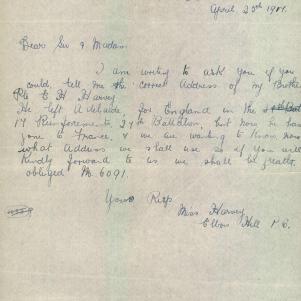 April 25th 1917.
Dear Sir & Madam
I am writing to ask you if you
could, tell me the correct Address of my Brother
Pte E H Harvey
He left Adelaide, for England in the
17 Reinforcements, 27th Battalion, but now he has
gone to France, & we are wanting to know now
what Address we shall use so if you will
kindly forward to us we shall be greatly
obliged M. 6091.
Yours Resp
Miss Harvey
Hill